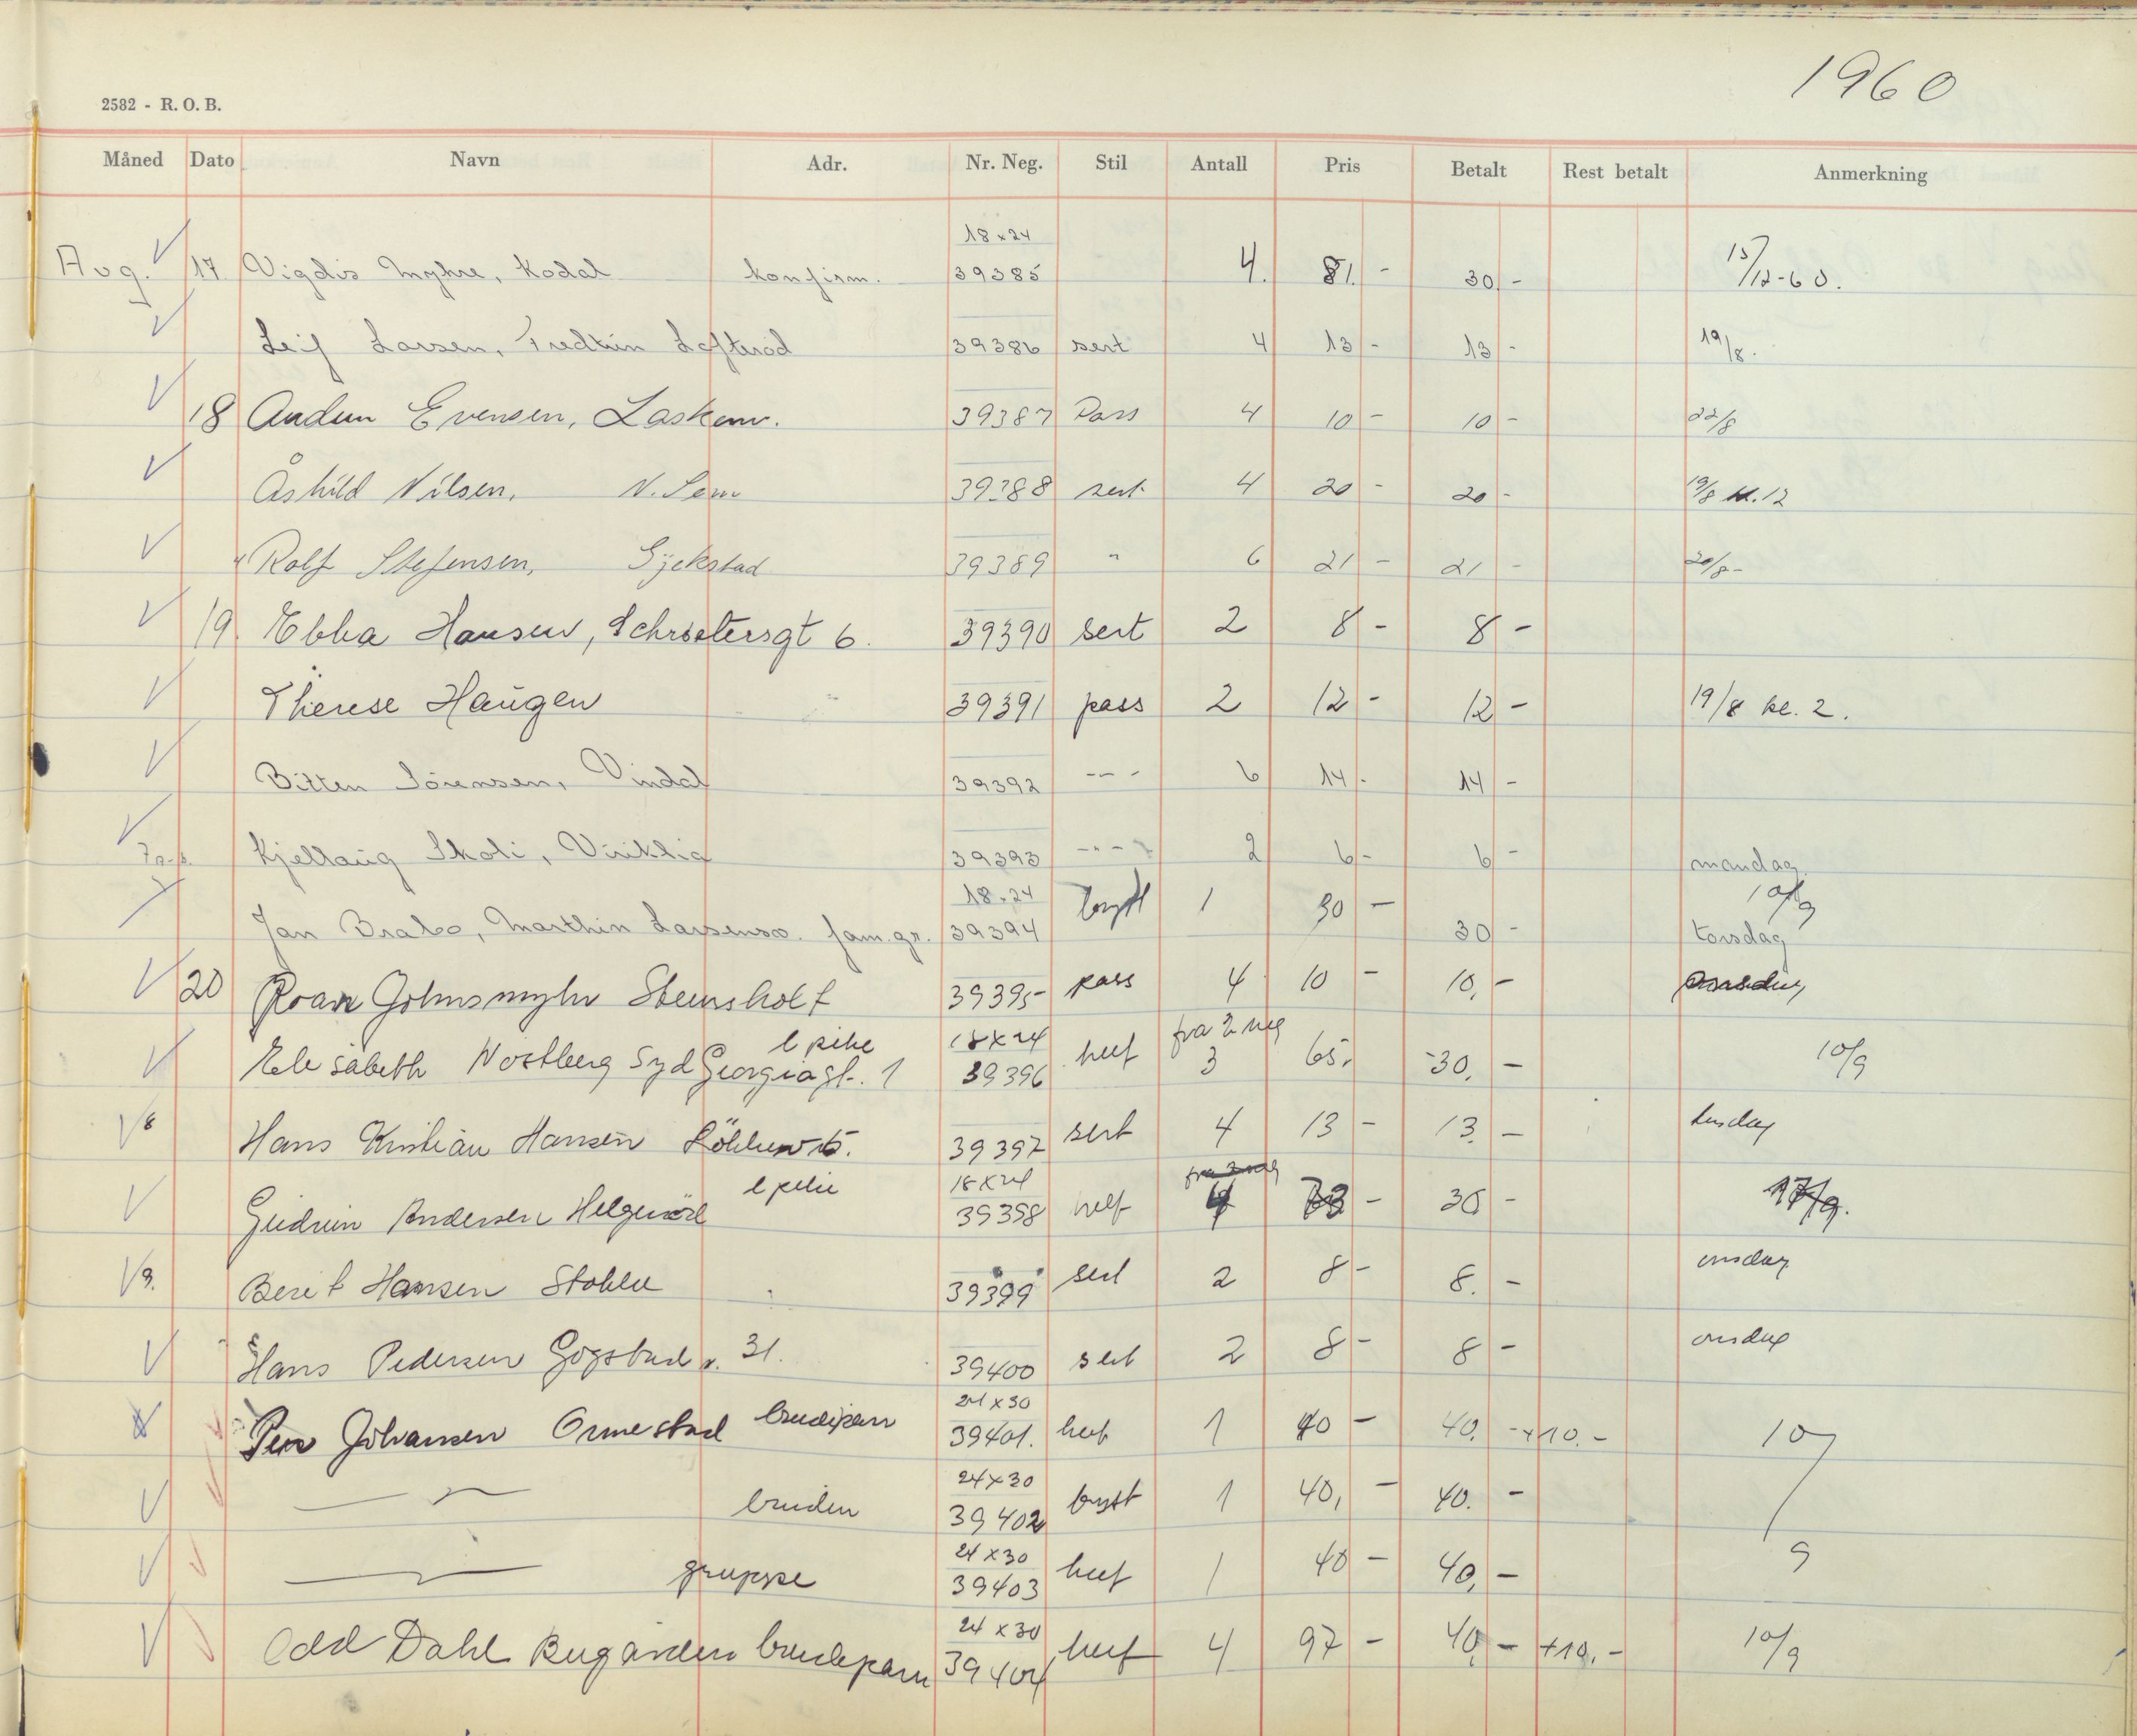 1960
2582 - R. O. B.
Måned Dato Navn Adr. Nr. Neg. Stil Antall Pris Betalt Rest betalt Anmerkning
18x24
Aug. 17 Vigdis Myhre, Kodal konfirm. 39385 4. 81.- 30,- 15/12-60.
Leif Larsen, Løfterød 39386 sert 4 13- 13- 19/8.
18 Audun Evensen, 39387 Pass 4 10- 10- 22/8
Åshild Nilsen, N. Sem 39388 sert 4 20- 20- 19/8 kl. 12
Rolf Stefensen, Gjekstad 39389 " 6 21- 21- 20/8-
19. Ebba Hansen, Schrøtersgt 6. 39390 sert 2 8- 8-
Therese Haugen 39391 pass 2 12- 12- 19/8 kl. 2.
Bitten Sørensen, Vindal 39392 --- 6 14- 14-
Kjellaug Skoli, Viriklia 39393 --- 2 6- 6- mandag
18x24 10/9
Jan Brabo, Marthin Larsensv. fam.gr. 39394 bryst 1 30- 30- torsdag
20 Roar Steinsholt 39395- pass 4 10- 10,-
18x24 fra 2 neg
Elisabeth Wostberg Syd Georgiagt. 1 39396 heef 3 65,- 30,- 10/9
Hans Kristian Hansen 39397 sert 4 13- 13.-
18x24
Gudrun Andersen Helgerød 39398 helf 4 - 30- 17/9.
Berit Hansen 39399 sert 2 8- 8.- onsdag
Hans Pedersen Gogstad v. 31. 39400 sert 2 8- 8- onsdag
24x30
Per Johansen Ormestad brudepar 39401. heef 1 40- 40,- +10.- 10/9
24x30
bruden 39402 bryst 1 40,- 40.-
24x30
gruppe 39403 heef 1 40- 40,-
24x30
Odd Dahl Bugården brudepar 39404 heef 4 97- 40,- +10,- 10/9